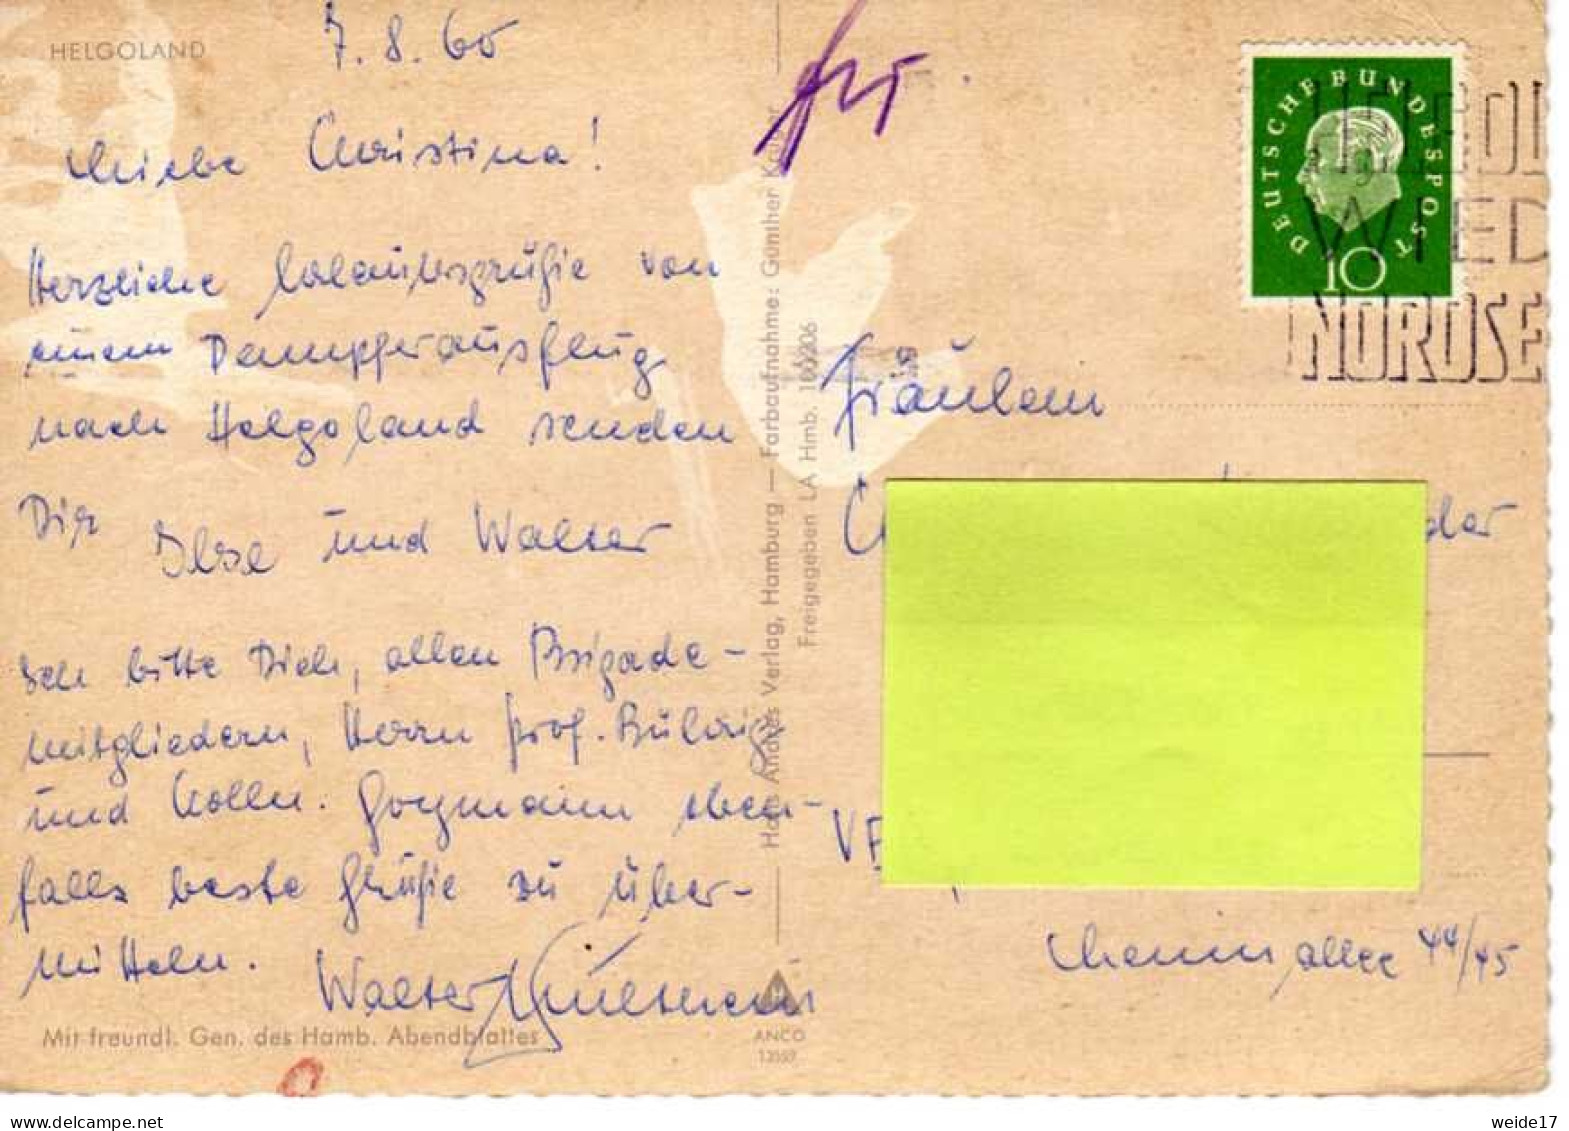 HELGOLAND
7.8.60
Liebe Christina!
Herzliche Urlaubsgrüße von
einem Dampferausflug
nach Helgoland senden
Dir
Ilse und Walter
Ich bitte Dich, allen Brigade-
mitgliedern, Herrn Prof. Bührig
und Kolln. ebenfalls
falls beste Grüße zu über-
mitteln.
Walter
Mit freundl. Gen. des Hamb. Abendblattes
Hans Andres Verlag, Hamburg — Farbaufnahme: Günther
Freigegeben LA Hmb.
ANCO
DEUTSCHE BUNDESPOST
10
WIED
NORDSE
Fräulein
der
44/45
www.delcampe.net
weide17